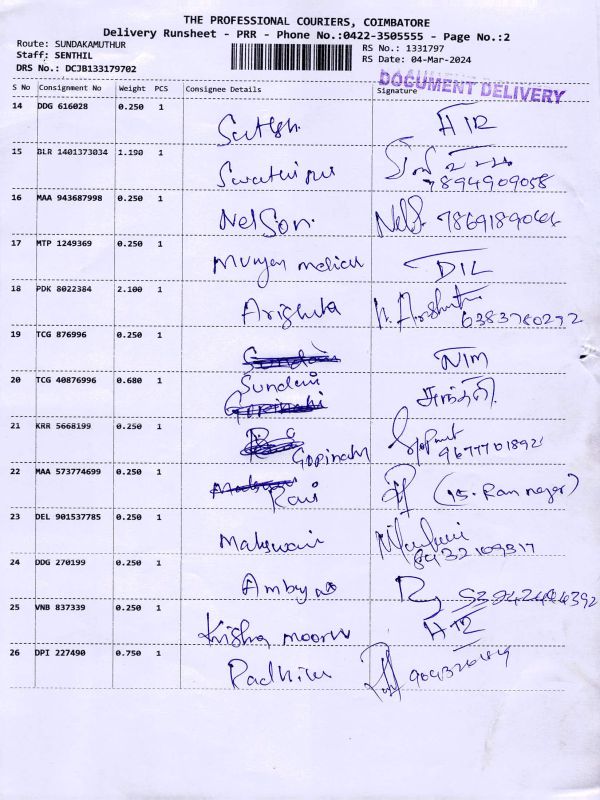 THE PROFESSIONAL COURIERS, COIMBATORE
Delivery Runsheet - PRR - Phone No.:0422-3505555 - Page No.:2
Route: SUNDAKAMUTHUR
Staff: SENTHIL
DRS No.: DCJB133179702
RS No.: 1331797
RS Date: 04-Mar-2024
DOCUMENT DELIVERY
S No Consignment No Weight PCS Consignee Details Signature
14 DDG 616028 0.250 1
Satesh
15 BLR 1401373034 1.190 1
7894909058
16 MAA 943687998 0.250 1
Nelson
17 MTP 1249369 0.250 1
DIL
18 PDK 8022384 2.100 1
6383780292
19 TCG 876996 0.250 1
NIM
20 TCG 40876996 0.680 1
21 KRR 5668199 0.250 1
Gopinath 9677701892
22 MAA 573774699 0.250 1
Ravi (15. Ram nagar)
23 DEL 901537785 0.250 1
24 DDG 270199 0.250 1
25 VNB 837339 0.250 1
26 DPI 227490 0.750 1